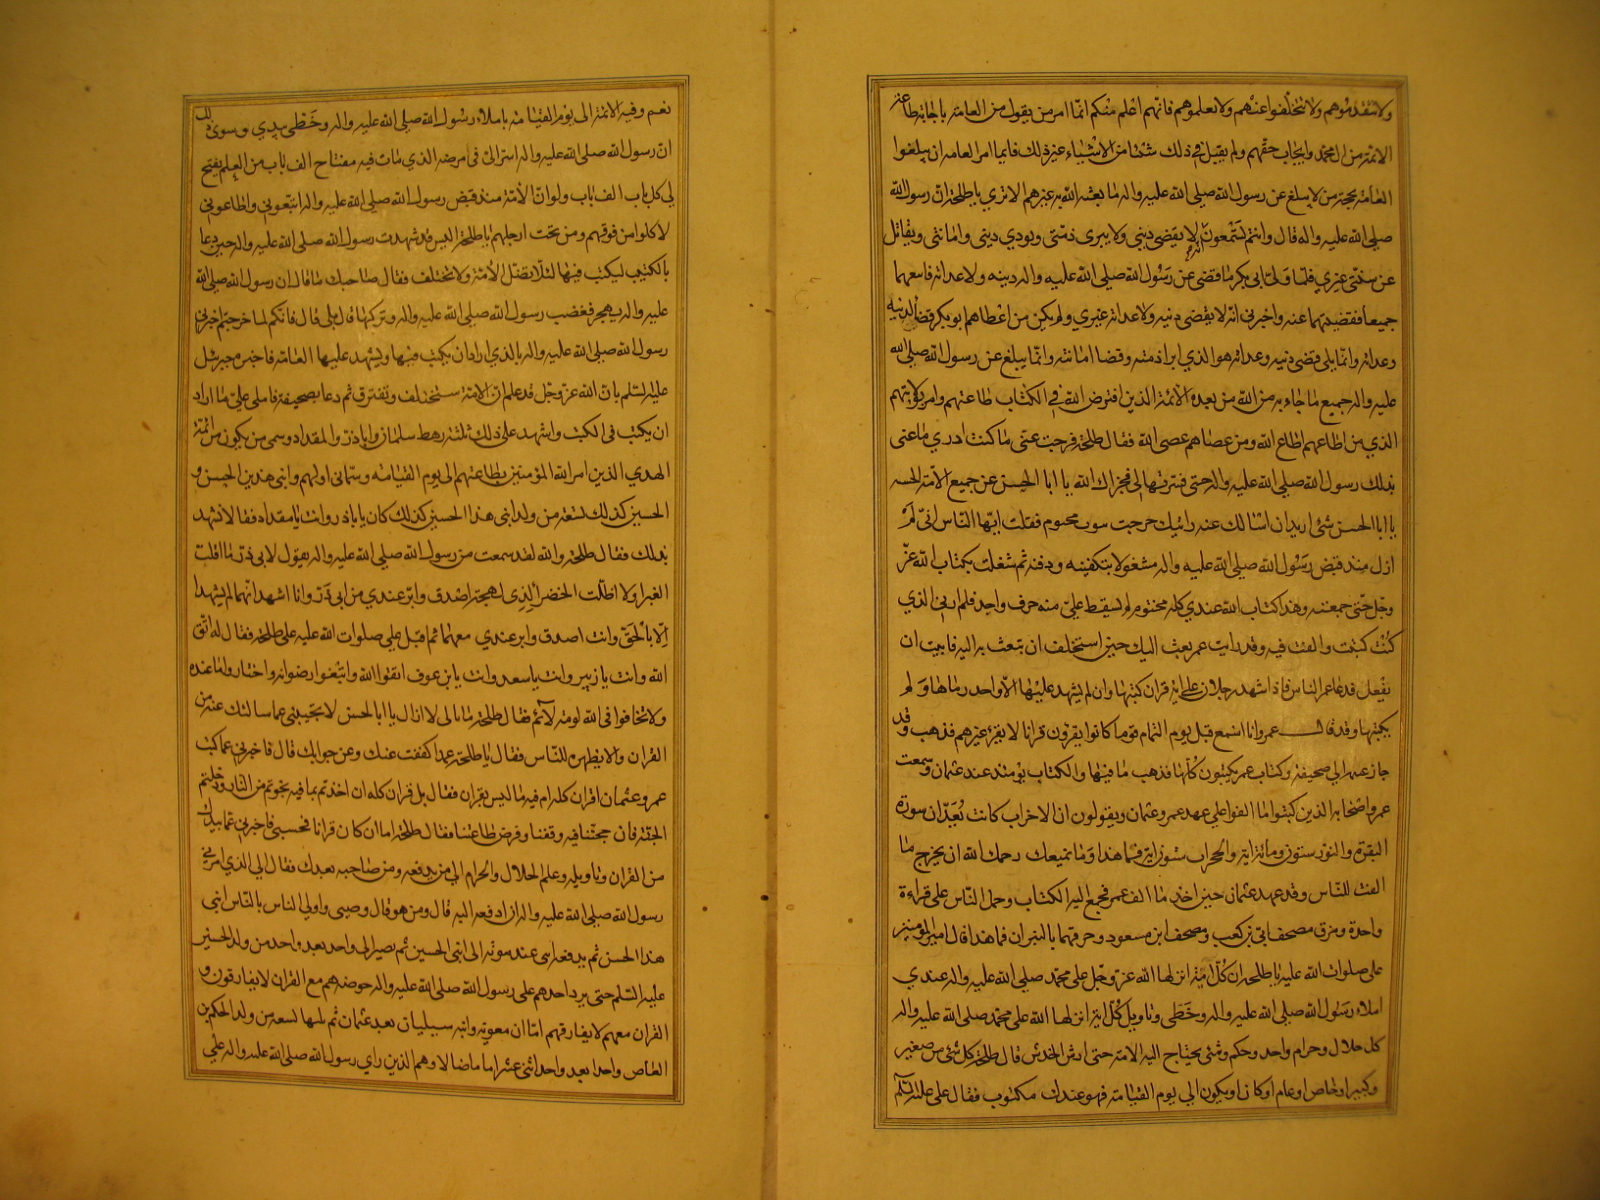 ولا تتقدموهم ولا تتخلفوا عنهم ولا تعلموهم فانهم اعلم منكم انما امر من يقول من العامة بايجاب طاعة
الائمة من ال محمد وايجاب حقهم ولم يقبل في ذلك شئا من الاشياء غير ذلك فايما امر العامه ان يبلغوا
العامة بحجة من لا يبلغ عن رسول الله صلى الله عليه واله ما بعثه الله به غيرهم الا ترى يا طلحة ان رسول الله
صلى الله عليه واله قال وانتم تسمعون لا يقضي ديني ولا يبرى ذمتي ويودي ديني وامانتي ويقاتل
عن سنتي غيري فلما ولى ابي بكر ما قضى عن رسول الله صلى الله عليه واله دينه ولا عداته فاتبعهما
جميعا فقضيتهما عنه واخبرني انه لا يقضي دينه ولا عداته غيري ولم يكن من اعطاهم بو بكر قضا لدينه
وعداته وانما يلي قضى دينه وعداته هو الذي ابرا ذمته وقضا امانته وانما يبلغ عن رسول الله صلى الله
عليه واله جميع ما جاء به من الله من بعده الائمة الذين افترض الله في الكتاب طاعتهم وامر بولايتهم
الذي من اطاعهم اطاع الله ومن عصاهم عصى الله فقال طلحة فرجت عني ما كنت ادري ما عنى
بذلك رسول الله صلى الله عليه واله حتى فسرتها لي فجزاك الله يا ابا الحسن عن جميع الامة الحسنه
يا ابا الحسن شئ اريد ان اسالك عنه رايتك خرجت بثوب مختوم فقلت ايها الناس اني لم
ازل منذ قبض رسول الله صلى الله عليه واله مشغولا بتكفينه ودفنه ثم شغلت بكتاب الله عز
وجل حتى جمعته وهذا كتاب الله عندي كله مختوم لم يسقط علي منه حرف واحد فلم ار بي الذي
كنت كتبت والفت فيه وقد رايت عمر بعث اليك حين استخلف ان تبعث به اليه فابيت ان
يفعل فدعا عمر الناس فاذا شهد رجلان على اية قران كتبها وان لم يشهد عليها الا واحد رماها ولم
يكتبها وقد قال عمر وانا اسمع قبل يوم اليمام قوما كانوا يقرؤن قرانا لا يقرئه غيرهم فذهب وقد
جاز عنهم الى صحيفة وكتاب عمر يكتبون كلها فذهب ما فيها والكتاب يومئذ عند عثمان وسمعت
عمر واصحابه الذين كتبوا ما الفوا على عهد عمر وعثمان ويقولون ان الاحزاب كانت تعدل سورة
البقرة والنور ستون ومائة اية والحجرات ستون اية فما هذا وما يمنعك رحمك الله ان يخرج ما
الفت للناس وقد عهد عثمان حين اخذ ما الف عمر فجمع اليه الكتاب وحمل الناس على قراءة
واحدة ومزق مصحف ابي بن كعب ومصحف ابن مسعود وحرقهما بالنيران فما هذا قال امير المؤمنين
على صلوات الله عليه يا طلحه ان كل اية انزلها الله عز وجل على محمد صلى الله عليه واله عندي
املاء رسول الله صلى الله عليه واله وخطى وتاويل كل اية انزلها الله على محمد صلى الله عليه واله
كل حلال وحرام واحد وحكم وشئ يحتاج اليه الامه حتى ارش الخدش قال طلحة كل شئ من صغير
وكبير او خاص او عام او كان او يكون الى يوم القيامة فهو عندك مكتوب فقال على عليه السلم
نعم وفيه الائمة الى يوم القيامة باملاء رسول الله صلى الله عليه واله وخطى بيدي وسوى ذلك
ان رسول الله صلى الله عليه واله اسر الي في مرضه الذي مات فيه مفتاح الف باب من العلم يفتح
لي كل باب الف باب ولو ان الامة منذ قبض رسول الله صلى الله عليه واله اتبعوني واطاعوني
لاكلوا من فوقهم ومن تحت ارجلهم يا طلحة اليس قد شهدت رسول الله صلى الله عليه واله حين دعا
بالكتب ليكتب فيها لئلا يضل الامة ولا تختلف فقال صاحبك ما قال ان رسول الله صلى الله
عليه واله يهجر فغضب رسول الله صلى الله عليه واله وتركها قال بلى قال فانكم لما خرجتم اخبرني
رسول الله صلى الله عليه واله بالذي اراد ان يكتب فيها ويشهد عليها العامة فاخبره جبرئيل
عليه السلم بان الله عز وجل قد علم ان الامة ستختلف وتفترق ثم دعا بصحيفة فاملى على ما اراد
ان يكتب في الكتب واشهد على ذلك ثلثة رهط سلمان وابا ذر والمقداد وسمى من يكون من ائمة
الهدي الذين امر الله المؤمنين بطاعتهم الى يوم القيامة وسماني اولهم وابني هذين الحسن و
الحسين كذلك تسعة من ولد ابني هذا الحسين كذلك كان يا باذر وانت يا مقداد فقالا نشهد
بذلك فقال طلحة والله لقد سمعت من رسول الله صلى الله عليه واله يقول لابي ذر ما اقلت
الغبرا ولا اظلت الخضرا لذي لهجة اصدق وابر عندي من ابي ذر وانا اشهد انهما لم يشهدا
الا بالحق وانت اصدق وابر عندي معهما ثم اقبل على صلوات الله عليه على طلحة فقال له اتق
الله وانت يا زبير وانت يا سعد وانت يا بن عوف اتقوا الله واتبغوا رضوانه واختاروا ما عنده
ولا تخافوا في الله لومة لآئم فقال طلحة ما بالي لا ازال يا ابا الحسن لا تجيبني عما سالتك عنه من
القران والا يظهره للناس فقال يا طلحة عمدا كففت عنك وعن جوابك قال فاخبرني عما كتب
عمر وعثمان اقران كله ام فيه ما ليس بقران فقال بل قران كله ان اخذتم بما فيه نجوتم من النار ودخلتم
الجنة فان حجتنا فيه وفضنا وفرض طاعتنا فقال طلحة اما ان كان قرانا فحسبي فاخبرني عما بيدك
من القران وتاويله وعلم الحلال والحرام الى من يدفعه ومن صاحبه بعدك فقال الى الذي امرني
رسول الله صلى الله عليه واله ان ادفعه اليه قال ومن هو قال وصيى واولى الناس بالناس ابني
هذا الحسن ثم يدفعه ابني عند موته الى ابني الحسين ثم يصير الى واحد بعد واحد من ولد الحسين
عليه السلم حتى يرد احدهم على رسول الله صلى الله عليه واله حوضه هم مع القران لا يفارقون و
القران معهم لا يفارقهم اما ان معوية وابنه سيليان بعد عثمان ثم يليها تسعه من ولد الحكم بن
العاص واحدا بعد واحد اثنى عشر اماما ضالا وهم الذين راى رسول الله صلى الله عليه واله على